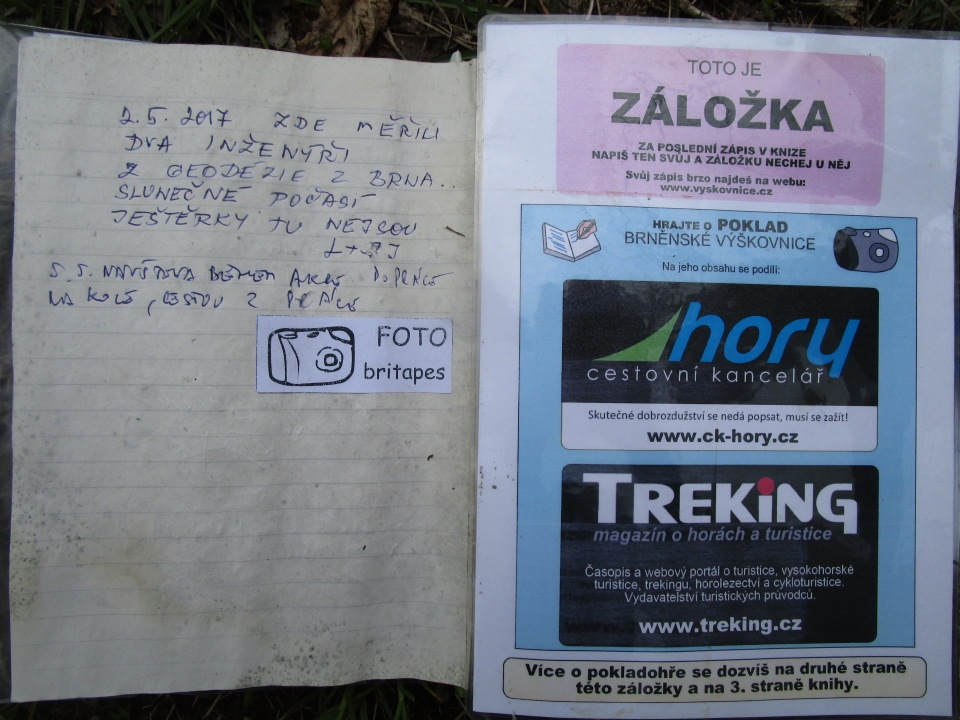 2.5. 2017 ZDE MĚŘILI
DVA INŽENÝŘI
Z GEODÉZIE Z BRNA..
SLUNEČNÉ POČASÍ
JEŠTĚRKY TU NEJSOU
5.5. NÁVŠTĚVA BĚHEM AKCE DO PRÁCE
NA KOLE, CESTOU Z PRÁCE
FOTO
britapes
TOTO JE
ZÁLOŽKA
ZA POSLEDNÍ ZÁPIS V KNIZE
NAPIŠ TEN SVŮJ A ZÁLOŽKU NECHEJ U NĚJ
Svůj zápis brzo najdeš na webu:
www.vyskovnice.cz
HRAJTE O POKLAD
BRNĚNSKÉ VÝŠKOVNICE
Na jeho obsahu se podílí:
hory
cestovní kancelář
Skutečné dobrozdužství se nedá popsat, musí se zažít!
www.ck-hory.cz
TREKING
magazín o horách a turistice
Časopis a webový portál o turistice, vysokohorské
turistice, trekingu, horolezectví a cykloturistice.
Vydavatelství turistických průvodců.
www.treking.cz
Více o pokladohře se dozvíš na druhé straně
této záložky a na 3. straně knihy.